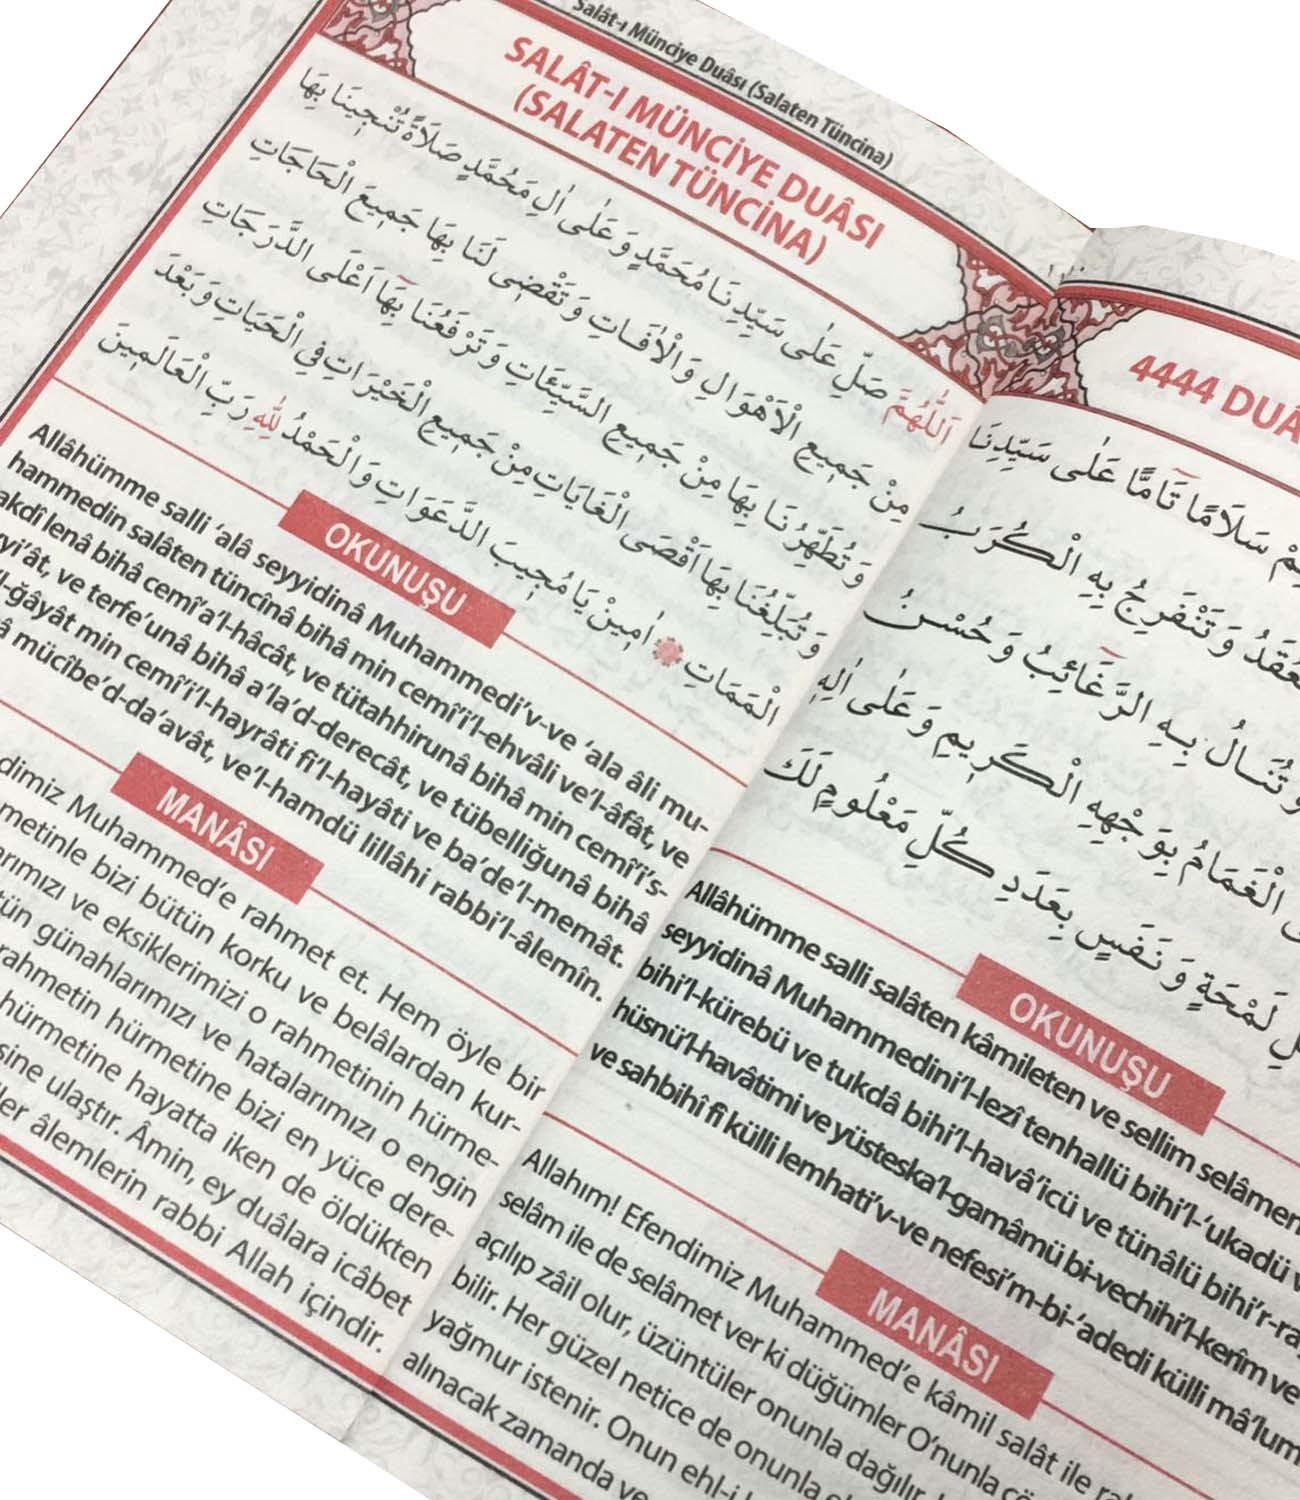 Salât-ı Münciye Duâsı (Salaten Tüncina)
SALÂT-I MÜNCİYE DUÂSI
(SALATEN TÜNCİNA)
اَللّٰهُمَّ صَلِّ عَلٰى سَيِّدِنَا مُحَمَّدٍ وَعَلٰى اٰلِ مُحَمَّدٍ صَلَاةً تُنْجِينَا بِهَا
مِنْ جَمِيعِ الْاَهْوَالِ وَالْاٰفَاتِ وَتَقْضِى لَنَا بِهَا جَمِيعَ الْحَاجَاتِ
وَتُطَهِّرُنَا بِهَا مِنْ جَمِيعِ السَّيِّئَاتِ وَتَرْفَعُنَا بِهَا اَعْلَى الدَّرَجَاتِ
وَتُبَلِّغُنَا بِهَا اَقْصَى الْغَايَاتِ مِنْ جَمِيعِ الْخَيْرَاتِ فِي الْحَيَاتِ وَبَعْدَ
الْمَمَاتِ اٰمِينْ يَا مُجِيبَ الدَّعَوَاتِ وَالْحَمْدُ لِلّٰهِ رَبِّ الْعَالَمِينَ
OKUNUŞU
Allâhümme salli ‘alâ seyyidinâ Muhammedi’v-ve ‘ala âli mu-
hammedin salâten tüncînâ bihâ min cemî’i’l-ehvâli ve’l-âfât, ve
lenâ bihâ cemî’a’l-hâcât, ve tütahhirunâ bihâ min cemî’i’s-
ve terfe’unâ bihâ a’la’d-derecât, ve tübelliğunâ bihâ
min cemî’i’l-hayrâti fi’l-hayâti ve ba’de’l-memât.
mücîbe’d-da’avât, ve’l-hamdü lillâhi rabbi’l-âlemîn.
MANÂSI
Muhammed’e rahmet et. Hem öyle bir
bizi bütün korku ve belâlardan kur-
ve eksiklerimizi o rahmetinin hürme-
günahlarımızı ve hatalarımızı o engin
rahmetin hürmetine bizi en yüce dere-
hürmetine hayatta iken de öldükten
ulaştır. Âmin, ey duâlara icâbet
âlemlerin rabbi Allah içindir.
4444
سَلَامًا تَآمًّا عَلٰى سَيِّدِنَا
وَتَنْفَرِجُ بِهِ الْكُرَبُ
وَتُنَالُ بِهِ الرَّغَآئِبُ وَحُسْنُ
الْغَمَامُ بِوَجْهِهِ الْكَرِيمِ وَعَلٰى اٰلِهِ
لَمْحَةٍ وَنَفَسٍ بِعَدَدِ كُلِّ مَعْلُومٍ لَكَ
OKUNUŞU
Allâhümme salli salâten kâmileten ve sellim
seyyidinâ Muhammedini’l-lezî tenhallü bihi’l-‘ukadü
bihi’l-kürebü ve tukdâ bihi’l-havâ’icü ve tünâlü
hüsnü’l-havâtimi ve yüsteska’l-gamâmü bi-vechihi’l-kerîm ve
ve sahbihî fî külli lemhati’v-ve nefesi’m-bi-‘adedi külli
MANÂSI
Allahım! Efendimiz Muhammed’e kâmil salât ile
selâm ile de selâmet ver ki düğümler O’nunla
açılıp zâil olur, üzüntüler onunla dağılır.
bilir. Her güzel netice de onunla
yağmur istenir. Onun ehl-i
alınacak zamanda